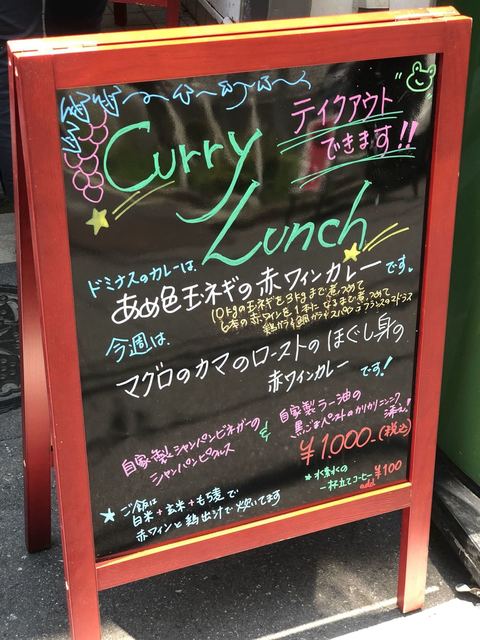 Curry
Lunch
ティクアウト
できます!!
ドミナスのカレーは、
あめ色玉ネギの赤ワインカレーです。
10kgの玉ネギを3kgまで煮つめて
6本の赤ワインを1本になるまで煮つめて
今週は、
マグロのカマのローストのほぐし身の
赤ワインカレーです!
自家製シャンパンビネガーの
シャンパンピクルス
&
自家製ラー油の
黒ごまペーストのカリカリニンニク
添え!
¥1,000-(税込)
★ご飯は
白米+玄米+もち麦で
赤ワインと鶏出汁で炊いてます
★水素水の
一杯立てコーヒー ¥100
add